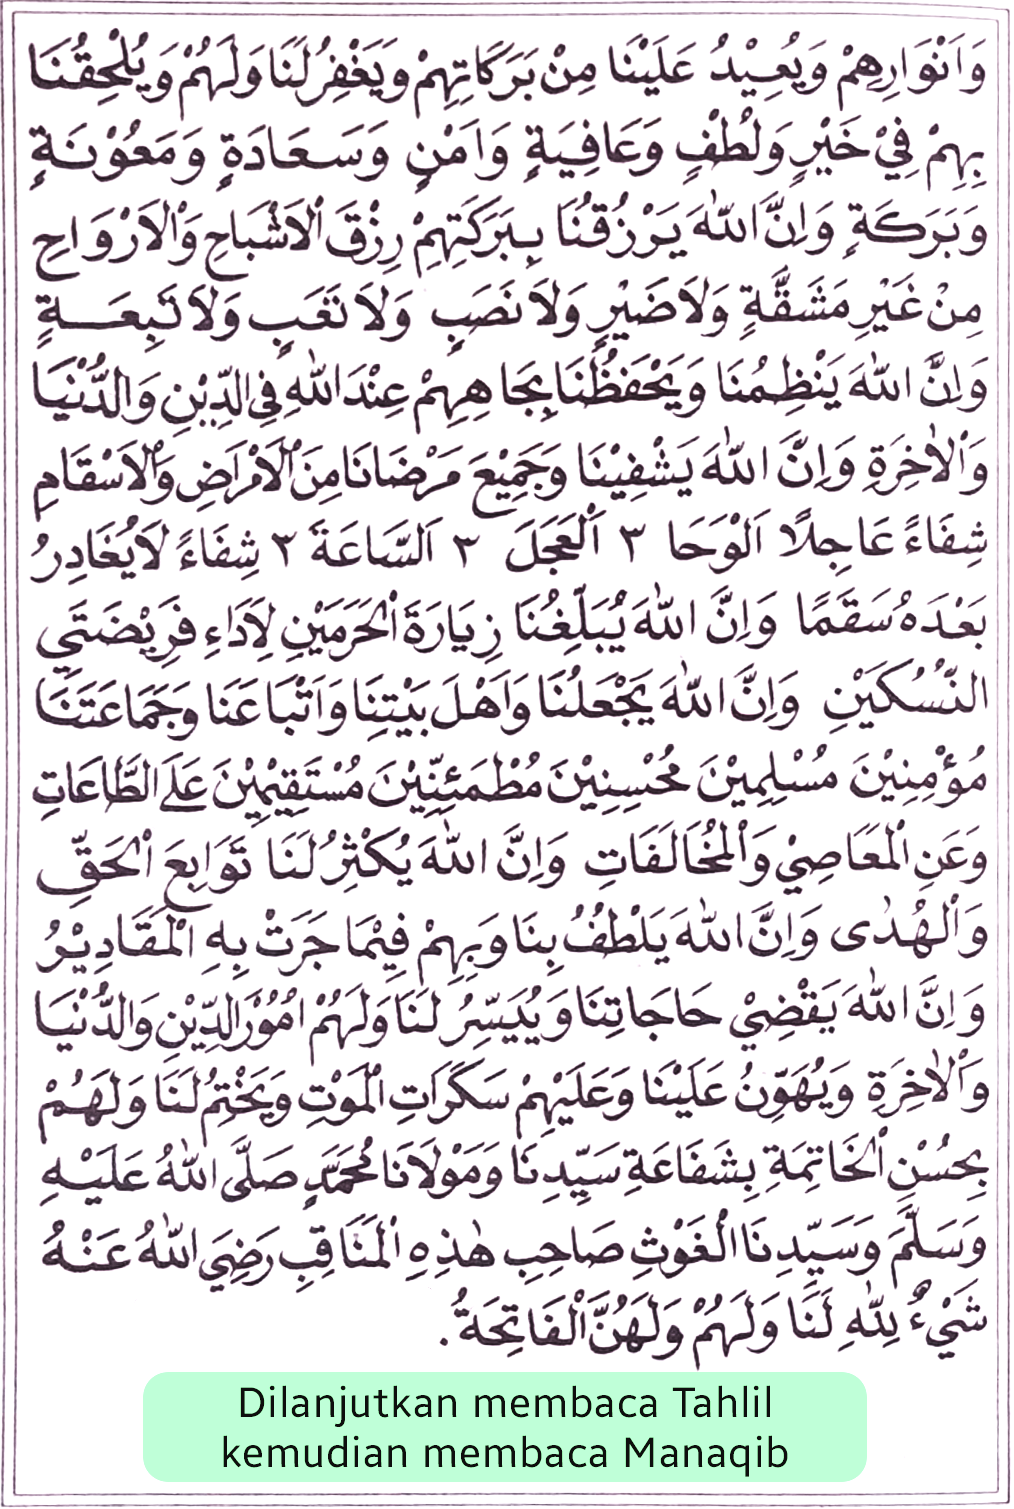 وَاَنْوَارِهِمْ وَيُعِيْدُ عَلَيْنَا مِنْ بَرَكَاتِهِمْ وَيَغْفِرُ لَنَا وَلَهُمْ وَيُلْحِقُنَا
بِهِمْ فِيْ خَيْرٍ وَلُطْفٍ وَعَافِيَةٍ وَاَمْنٍ وَسَعَادَةٍ وَمَعُوْنَةٍ
وَبَرَكَةٍ وَاِنَّ اللّٰهَ يَرْزُقُنَا بِبَرَكَتِهِمْ رِزْقَ الْاَشْبَاحِ وَالْاَرْوَاحِ
مِنْ غَيْرِ مَشَقَّةٍ وَلَا ضَيْرٍ وَلَا نَصَبٍ وَلَا تَعَبٍ وَلَا تَبِعَةٍ
وَاِنَّ اللّٰهَ يَنْظِمُنَا وَيَحْفَظُنَا بِجَاهِهِمْ عِنْدَ اللّٰهِ فِى الدِّيْنِ وَالدُّنْيَا
وَالْاٰخِرَةِ وَاِنَّ اللّٰهَ يَشْفِيْنَا وَجَمِيْعَ مَرْضَانَا مِنَ الْاَمْرَاضِ وَالْاَسْقَامِ
شِفَاءً عَاجِلًا اَلْوَحَا ٣ اَلْعَجَلَ ٣ اَلسَّاعَةَ ٣ شِفَاءً لَا يُغَادِرُ
بَعْدَهُ سَقَمًا وَاِنَّ اللّٰهَ يُبَلِّغُنَا زِيَارَةَ الْحَرَمَيْنِ لِاَدَاءِ فَرِيْضَتَيِ
النُّسُكَيْنِ وَاِنَّ اللّٰهَ يَجْعَلُنَا وَاَهْلَ بَيْتِنَا وَاَتْبَاعَنَا وَجَمَاعَتَنَا
مُؤْمِنِيْنَ مُسْلِمِيْنَ مُحْسِنِيْنَ مُطْمَئِنِّيْنَ مُسْتَقِيْمِيْنَ عَلَى الطَّاعَاتِ
وَعَنِ الْمَعَاصِيْ وَالْمُخَالَفَاتِ وَاِنَّ اللّٰهَ يُكْثِرُ لَنَا تَوَابِعَ الْحَقِّ
وَالْهُدٰى وَاِنَّ اللّٰهَ يَلْطُفُ بِنَا وَبِهِمْ فِيْمَا جَرَتْ بِهِ الْمَقَادِيْرُ
وَاِنَّ اللّٰهَ يَقْضِيْ حَاجَاتِنَا وَيُيَسِّرُ لَنَا وَلَهُمْ اُمُوْرَ الدِّيْنِ وَالدُّنْيَا
وَالْاٰخِرَةِ وَيُهَوِّنُ عَلَيْنَا وَعَلَيْهِمْ سَكَرَاتِ الْمَوْتِ وَيَخْتِمُ لَنَا وَلَهُمْ
بِحُسْنِ الْخَاتِمَةِ بِشَفَاعَةِ سَيِّدِنَا وَمَوْلَانَا مُحَمَّدٍ صَلَّى اللّٰهُ عَلَيْهِ
وَسَلَّمَ وَسَيِّدِنَا الْغَوْثِ صَاحِبِ هٰذِهِ الْمَنَاقِبِ رَضِيَ اللّٰهُ عَنْهُ
شَيْءٌ لِلّٰهِ لَنَا وَلَهُمْ وَلَهُنَّ الْفَاتِحَةُ.
Dilanjutkan membaca Tahlil
kemudian membaca Manaqib